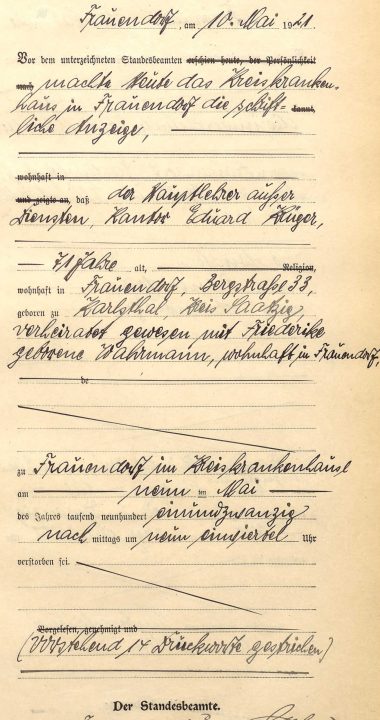 Frauendorf, am 10. Mai 1921
Vor dem unterzeichneten Standesbeamten erschien heute, der Persönlichkeit
nach machte heute das Kreiskranken-
haus in Frauendorf die schrift- kannt,
liche Anzeige,
wohnhaft in
und zeigte an, daß der Hauptlehrer außer
Diensten, Kantor Eduard Krüger,
71 Jahre alt, Religion,
wohnhaft in Frauendorf, Bergstraße 33,
geboren zu Karlsthal, Kreis Saatzig
verheiratet gewesen mit Friederike
geborene Wahrmann, wohnhaft in Frauendorf,
de
zu Frauendorf im Kreiskrankenhause
am neun im Mai
des Jahres tausend neunhundert einundzwanzig
nach mittags um neun einviertel Uhr
verstorben sei.
Vorgelesen, genehmigt und
(Vorstehend 14 Druckworte gestrichen)
Der Standesbeamte.